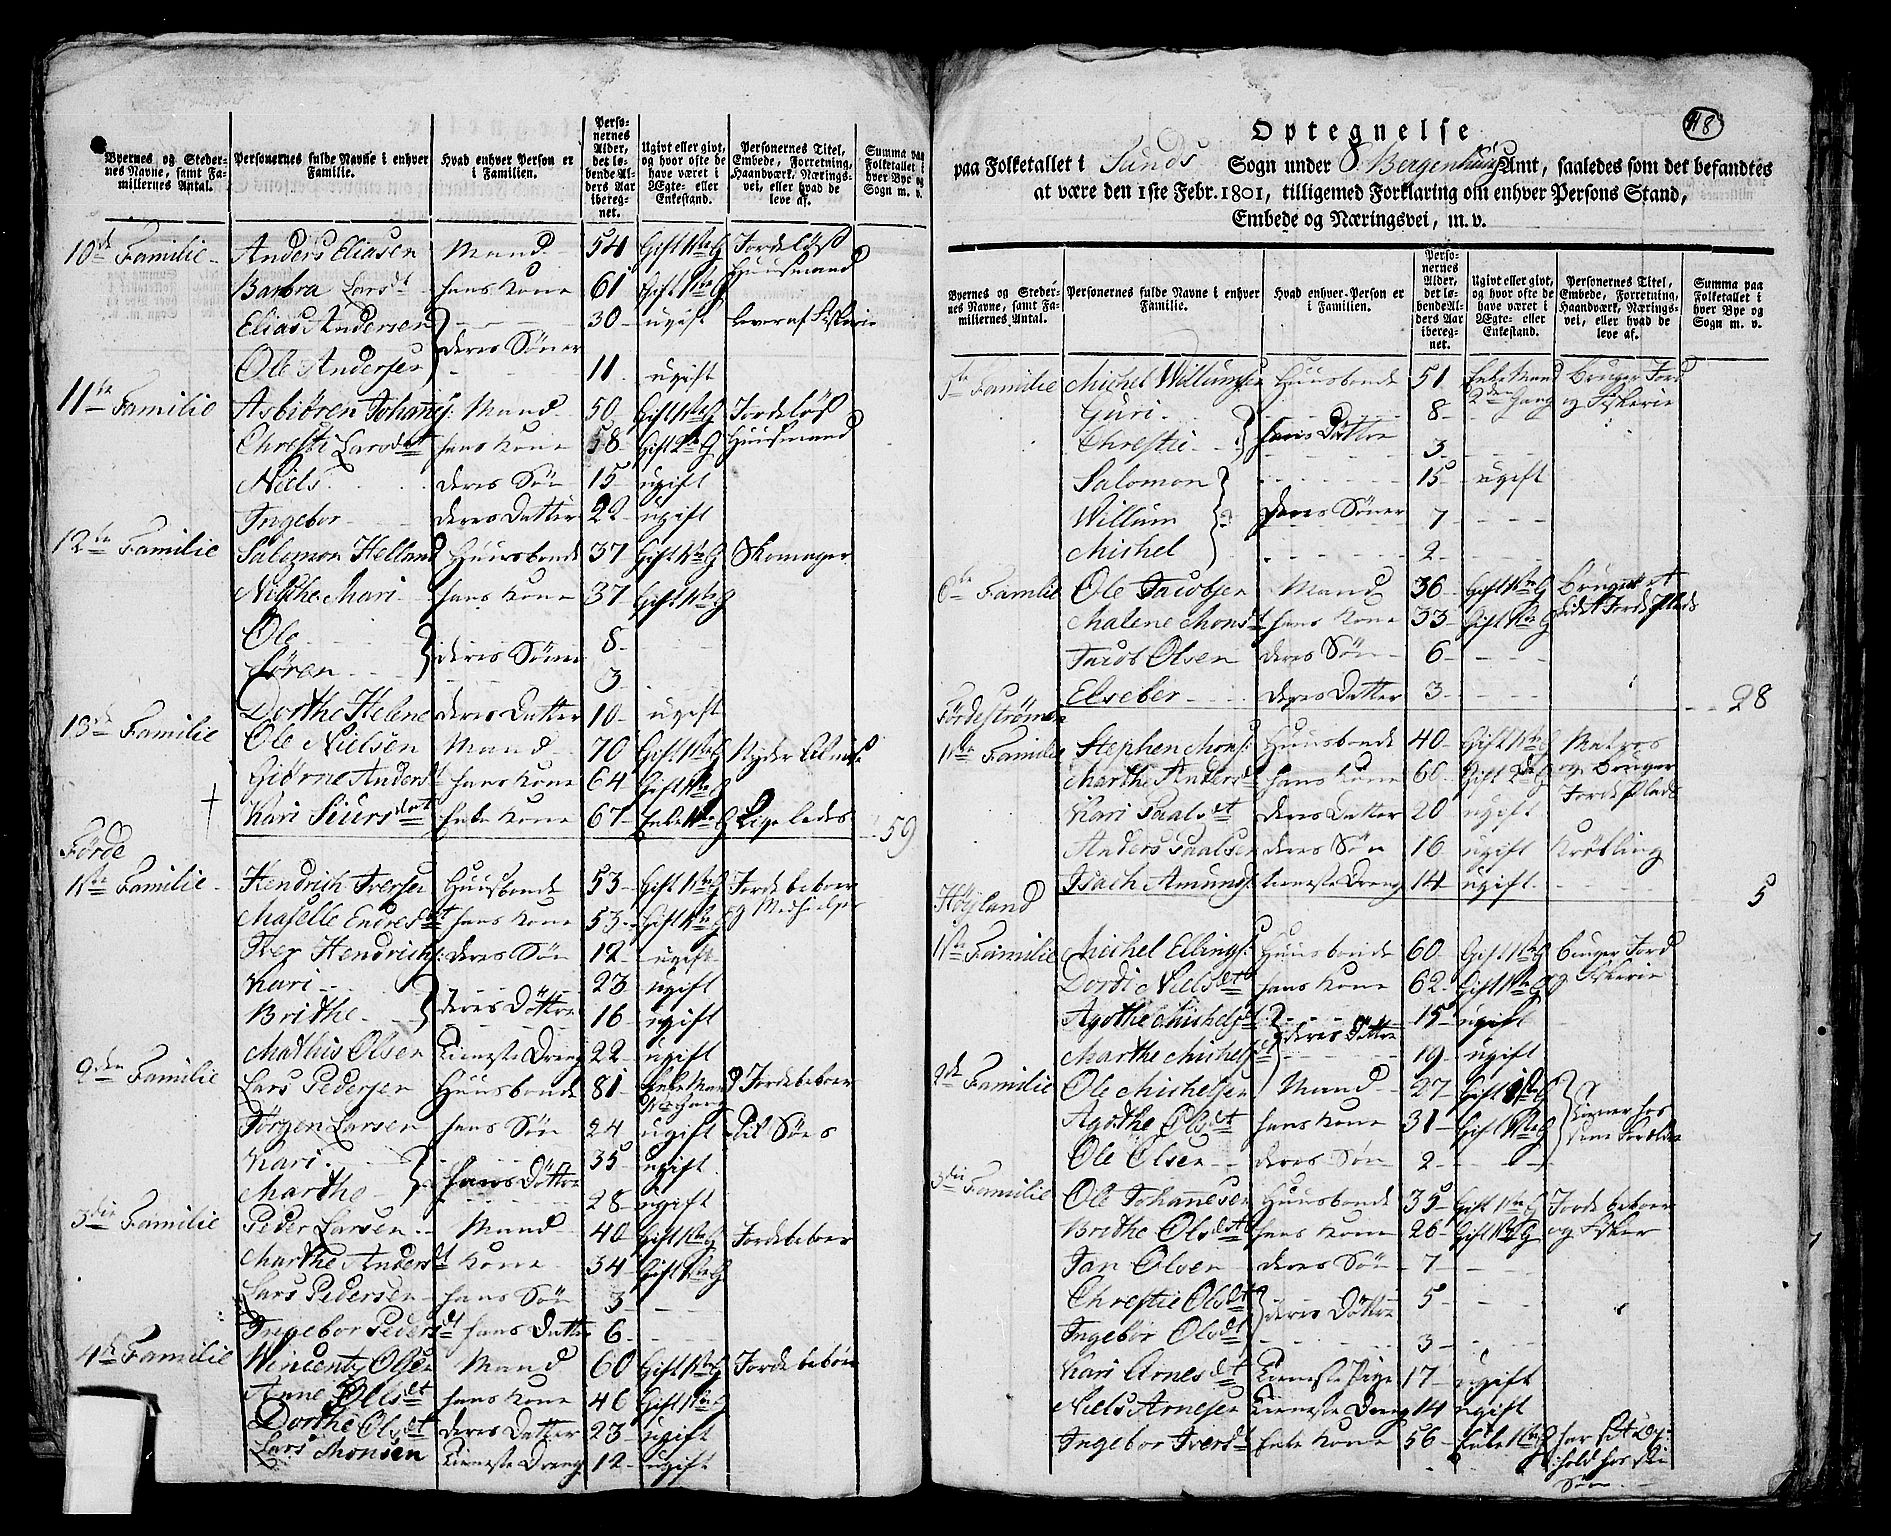 Byernes og Stedernes Navne, samt Familliernes Antal.
Personernes fulde Navne i enhver Familie.
Hvad enhver Person er i Familien.
Personernes Alder, det løbende Alders Aar iberegnet.
Ugivt eller givt, og hvor ofte de have været i Ægte- eller Enkestand.
Personernes Titel, Embede, Forretning, Haandværk, Næringsvei, eller hvad de leve af.
Summa paa Folketallet i hver Bye og Sogn m. v.
10de Familie Anders Eliasen Mand 54 Gift 1ste G Jordeløss Huusmand
Barbra Larsdt hans Kone 61 Gift 1ste G
Elias Andersen 30 ugift lever af Fiskerie
deres Söner
Ole Andersen 11 ugift
11te Familie Asbiören Johanes: Mand 50 Gift 1ste G Jordeløss Huusmand
Christi Larsdatt hans Kone 58 Gift 2de G
Niels deres Sön 15 ugift
Ingebor deres Datter 22 ugift
12te Familie Salomon Helland Huusbonde 37 Gift 1ste G Skomager
Nilche Mari hans Kone 37 Gift 1ste G
Ole 8
deres Sönner
Sören 3
Dorthe Helene deres Datter 10 ugift
13de Familie Ole Nielsen Mand 70 Gift 1ste G Nyder Almisse
Giörne Andersdt hans Kone 64 Gift 1ste G
Kari Siursdatt Enke Kone 67 Enke 1ste G Ligeledes 59
Förde
1ste Familie Hendrich Iversen Huusbonde 53 Gift 1ste G Jordebeboer og Medhielper
Maselle Endresdt hans Kone 53 Gift 1ste G
Iver Hendrichs: deres Sön 12 ugift
Kari 23 ugift
deres Döttre
Brithe 16 ugift
Mathis Olsen Tieneste Dreng 22 ugift
2den Familie Lars Pedersen Huusbonde 81 Enke Mand 1ste Gang Jordebeboer
Jörgen Larsen hans Sön 24 ugift Til Söes
Kari 35 ugift
hans Döttre
Marthe 28 ugift
3die Familie Peder Larsen Mand 40 Gift 1ste G Jordebeboer
Marthe Andersdt Kone 34 Gift 1ste G
Lars Pedersen hans Sön 3
Ingebor Pedersdt hans Datter 6
4de Familie Wincentz Olsen Mand 60 Gift 1ste G Jordebeboer
Anne Olsdt hans Kone 46 Gift 1ste G
Dorthe Olsdt deres Datter 23 ugift
Lars Monsen Tieneste Dreng 12 ugift
118
Optegnelse
paa Folketallet i Sunds Sogn under S. Bergenhuus Amt, saaledes som det befandtes
at være den 1ste Febr. 1801, tilligemed Forklaring om enhver Persons Stand,
Embede og Næringsvei, m. v.
Byernes og Stedernes Navne, samt Familiernes Antal.
Personernes fulde Navne i enhver Familie.
Hvad enhver Person er i Familien.
Personernes Alder, det løbende Alders Aar iberegnet.
Ugivt eller givt, og hvor ofte de have været i Ægte- eller Enkestand.
Personernes Titel, Embede, Forretning, Haandværk, Næringsvei, eller hvad de leve af.
Summa paa Folketallet i hver Bye og Sogn m. v.
5te Familie Michel Willumsen Huusbonde 51 Enke Mand 2den Gang Bruger Jord og Fiskerie
Guri 8
hans Döttre
Christie 3
Salomon 15 ugift
Willum deres Söner 7
Michel 2
6te Familie Ole Jacobsen Mand 36 Gift 1ste G Bruger et lidet Jorde Plads
Malene Monsdt hans Kone 33 Gift 1ste G
Jacob Olsen deres Sön 6
Elseber deres Datter 3 28
Fördeströmen
1ste Familie Stephen Mons: Huusbonde 40 Gift 1ste G Matros og Bruger Jordeplads
Marthe Andersdt hans Kone 60 Gift 2de G
Kari Paalsdt deres Datter 20 ugift
Anders Paalsen deres Sön 16 ugift Kröbling
Isach Amunds: tieneste Dreng 14 ugift 5
Höyland
1ste Familie Michel Ellings: Huusbonde 60 Gift 1ste G bruger Jord og Fiskerie
Dordi Nielsdt hans Kone 62 Gift 1ste G
Agothe Michelsdt 15 ugift
deres Döttre
Marthe Michelsdt 19 ugift
2de Familie Ole Michelsen Mand 27 Gift 1ste G Tiener hos sine Forældre
Agothe Olsdt hans Kone 31 Gift 1ste G
Ole Olsen deres Sön 2
3die Familie Ole Johanesen Huusbonde 35 Gift 1ste G Jordebeboer og Fisker
Brithe Olsdt hans Kone 26 Gift 1ste G
Jan Olsen deres Sön 7
Christie Olsdt 5
deres Döttre
Ingebor Olsdt 3
Kari Arnesdt Tieneste Pige 17 ugift
Niels Arnesen Tieneste Dreng 14 ugift
Ingebor Iversdt Enke Kone 56 Enke 1ste G har sit Op:hold hos sin Sön